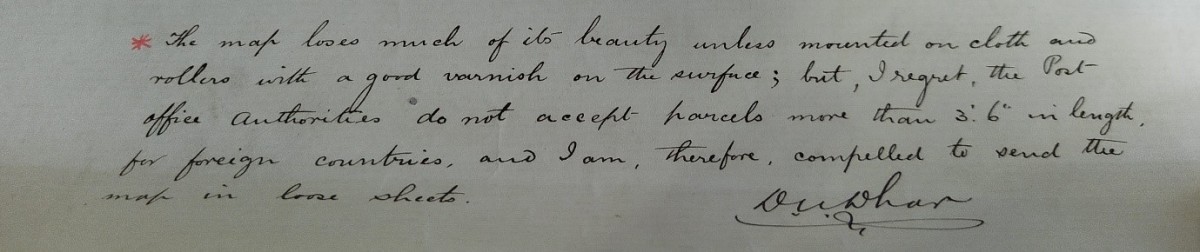 * The map loses much of its beauty unless mounted on cloth and
rollers with a good varnish on the surface; but, I regret, the Post
office authorities do not accept parcels more than 3' 6" in length,
for foreign countries, and I am, therefore, compelled to send the
map in loose sheets.
Dhar